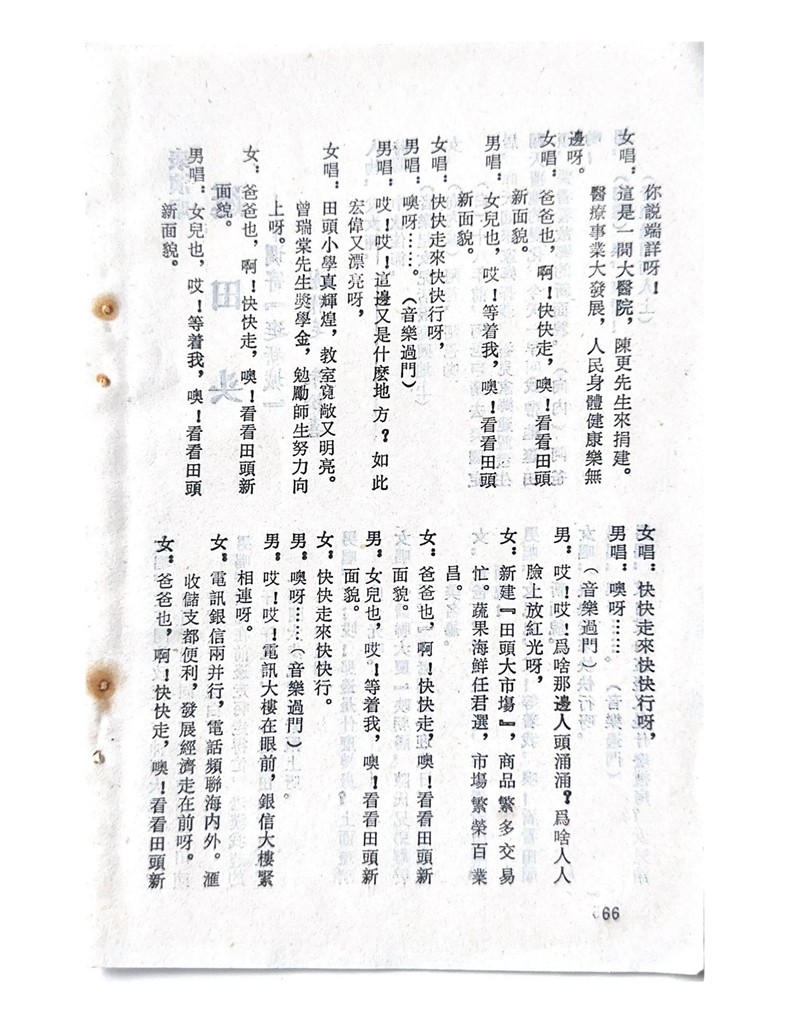 你說端詳呀！
女唱：這是一間大醫院，陳更先生來捐建。
醫療事業大發展，人民身體健康樂無
邊呀。
女唱：爸爸也，啊！快快走，噢！看看田頭
新面貌。
男唱：女兒也，哎！等着我，噢！看看田頭
新面貌。
女唱：快快走來快快行呀，
男唱：噢呀……。（音樂過門）
男唱：哎！哎！這邊又是什麼地方？如此
宏偉又漂亮呀，
女唱：田頭小學真輝煌，教室寬敞又明亮。
曾瑞棠先生獎學金，勉勵師生努力向
上呀。
女：爸爸也，啊！快快走，噢！看看田頭新
面貌。
男唱：女兒也，哎！等着我，噢！看看田頭
新面貌。
女唱：快快走來快快行呀，
男唱：噢呀……。
（音樂過門）
男：哎！哎！爲啥那邊人頭涌涌？爲啥人人
臉上放紅光呀，
女：新建『田頭大市場』，商品繁多交易
忙。蔬果海鮮任君選，市場繁榮百業
昌。
女：爸爸也，啊！快快走，噢！看看田頭新
面貌。
男：女兒也，哎！等着我，噢！看看田頭新
面貌。
女：快快走來快快行。
男：噢呀……（音樂過門）
男：哎！哎！電訊大樓在眼前，銀信大樓緊
相連呀。
女：電訊銀信兩并行，電話頻聯海內外。滙
收儲支都便利，發展經濟走在前呀。
女：爸爸也，啊！快快走，噢！看看田頭新
66